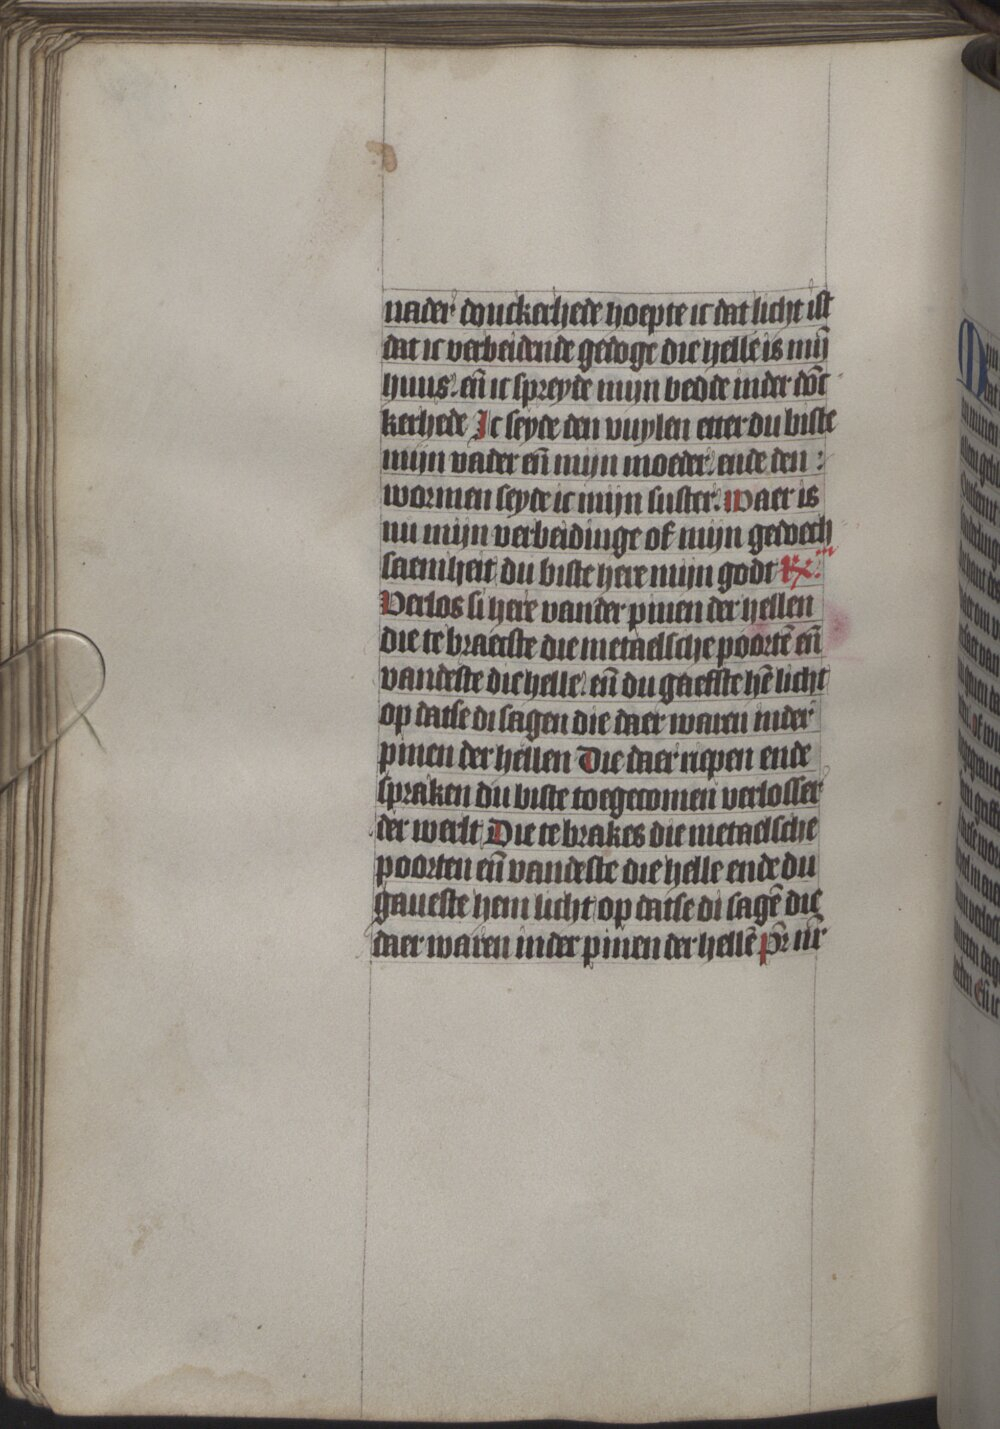 nader donckerhede hoepte ic dat licht ist
dat ic verbeidende gedoge die helle is mij̄
huus. eñ ic spreyde mijn bedde inder dōc
kerhede Ic seyde den vuylen etter du biste
mijn vader eñ mijn moeder. ende den :
wormen seyde ic mijn suster. waer is
nu mijn verbeidinge of mijn gedoech
saemheit du biste here mijn godt ℟.
Verlos mi here vander pinen der hellen
die te braecste die metaelsche poortē eñ
vandeste die helle. eñ du gaefste hē licht
op datse di sagen die daer waren inder
pinen der hellen Die daer riepen ende
spraken du biste toegecomen verlosser
der werlt Die te brakes die metaelsche
poorten eñ vandeste die helle ende du
gaueste hem licht op datse di sagē die
daer waren inder pinen der hellē pr̄ nr̄